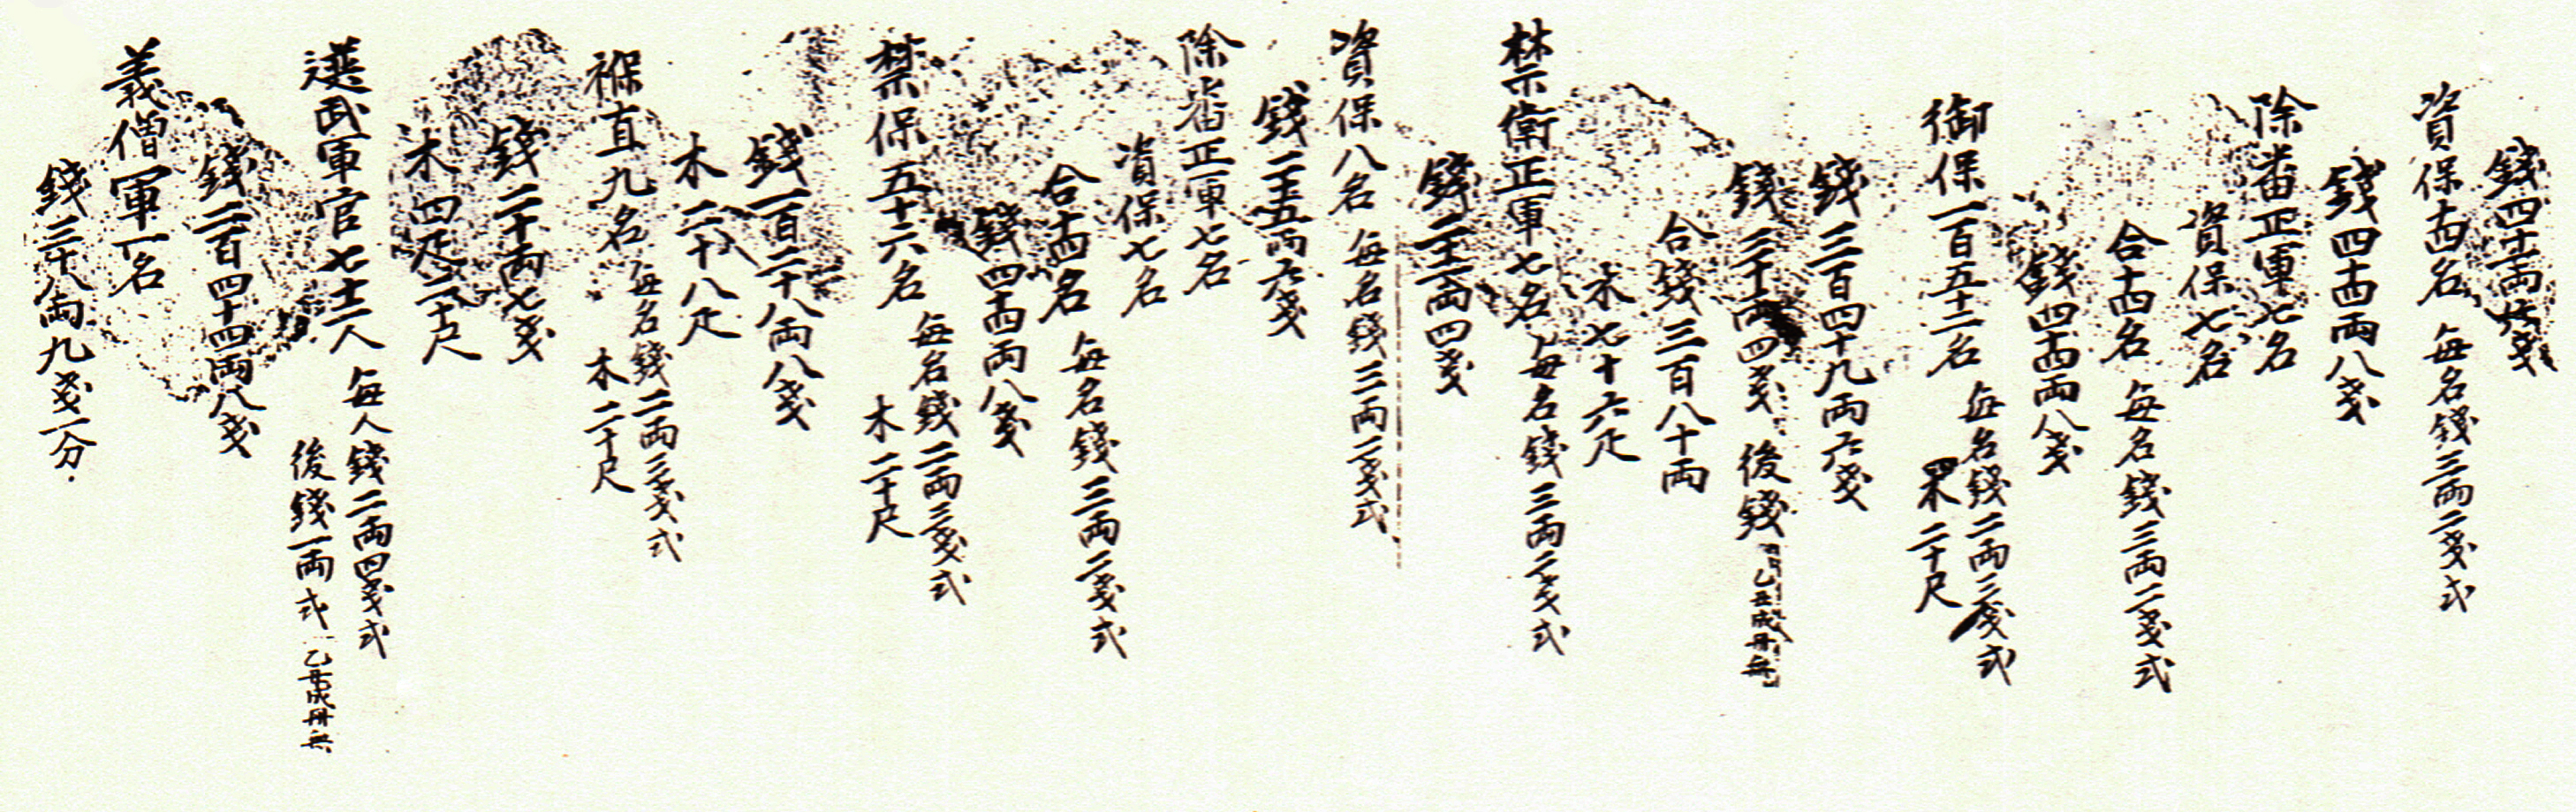 錢四十両戔
資保十四名 每名錢三両二戔式
錢四十四両八戔
除番正軍七名
資保七名
合十四名 每名錢三両二戔式
錢四十四両八戔
御保一百五十二名 每名錢二両三戔式
木二十尺
錢三百四十九両六戔
錢三十両四戔 後錢 乙丑成冊無
合錢三百八十両
木七十六疋
禁衛正軍七名 每名錢三両二戔式
錢二十二両四戔
資保八名 每名錢三両二戔式
錢二十五両六戔
除番正軍七名
資保七名
合十四名 每名錢三両二戔式
錢四十四両八戔
禁保五十六名 每名錢二両三戔式
木二十尺
錢一百二十八両八戔
木二十八疋
褓直九名 每名錢二両三戔式
木二十尺
錢二十両七戔
木四疋二十尺
選武軍官七十二人 每人錢二両四戔式
後錢一両式 乙丑成冊無
錢二百四十四両八戔
義僧軍一名
錢三十八両九戔一分